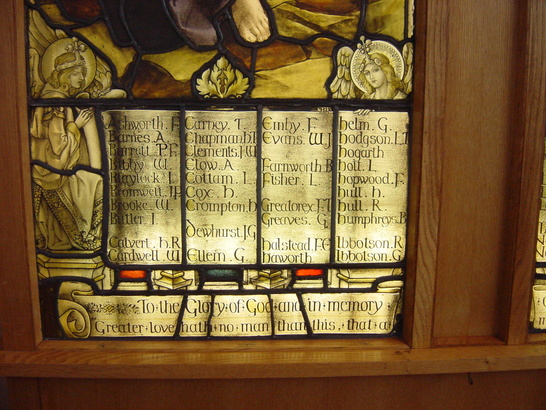 Ashworth. F
Barnes. A
Barratt. P.F.
Bibby. W.
Blaylock. I.
Bromwell. J.P.
Brooke. W.
Butler. I
Calvert. h.R
Cardwell. W
Carney. T.
Chapman. h.T
Clements. J.W
Clow. A
Cottam. L
Coxe. h
Crompton. h
Dewhurst. J.G
Ellein. G.
Emby. F
Evans. W.J
Farnworth. B
Fisher. L
Greatorex. F.T
Greaves. G
halstead. F.E
haworth
helm. G.
hodgson. I.T
hogarth
holt. L
hopwood. F.
hull. h.
hull. R.
humphreys. B
Ibbotson. R
Ibbotson. G
To·the·Glory·of·God·and·in·memory
Greater·love·hath·no·man·than·this,·that·a